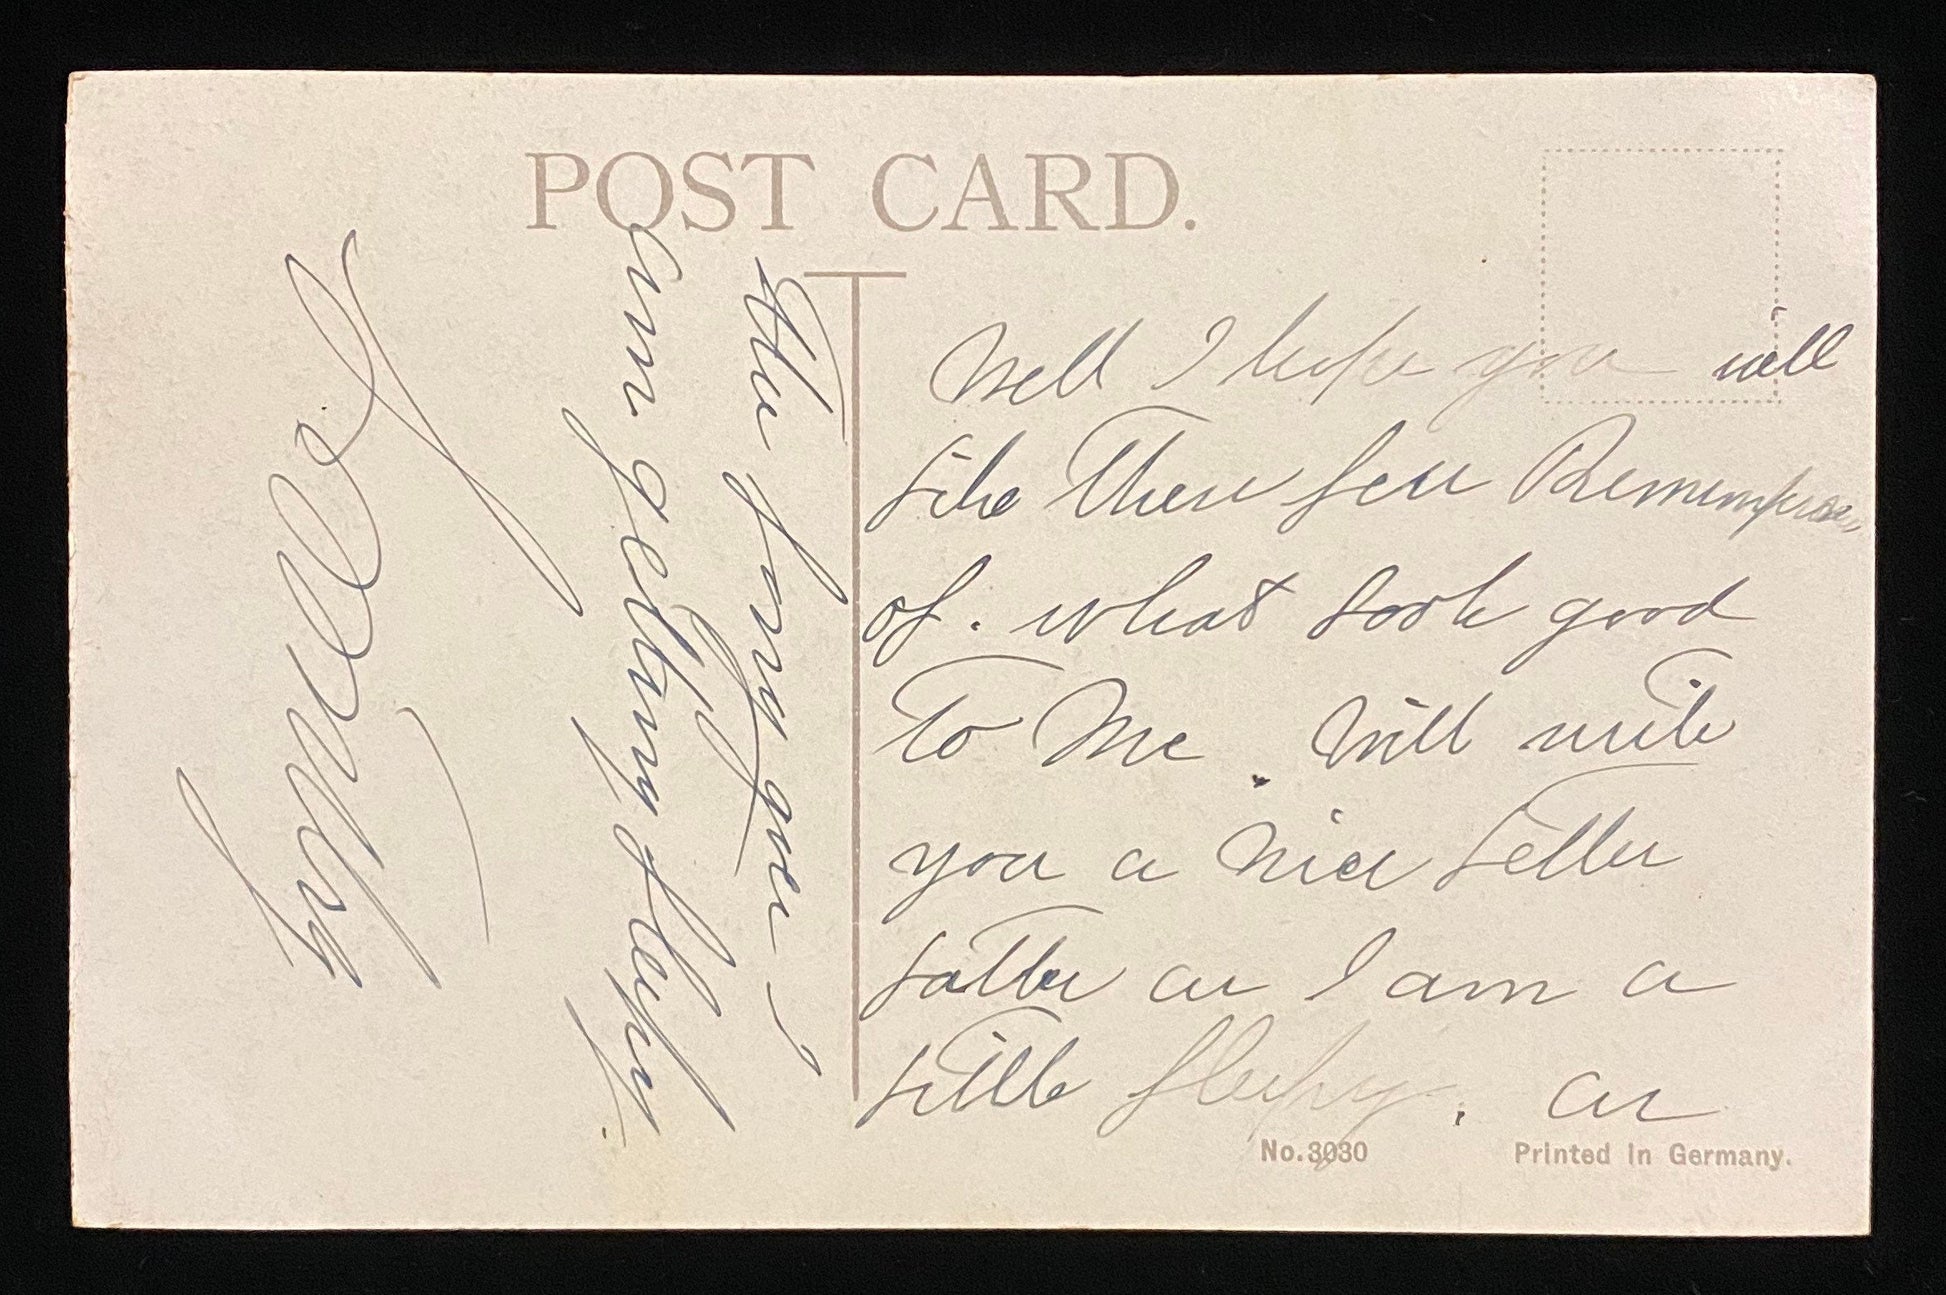 POST CARD.
Well I hope you will
Like These few
of. what Look good
To Me. Will write
you a Nice Letter
Latter as I am a
Little sleepy. as
The song goes I
am getting sleepy
No.3030
Printed in Germany.